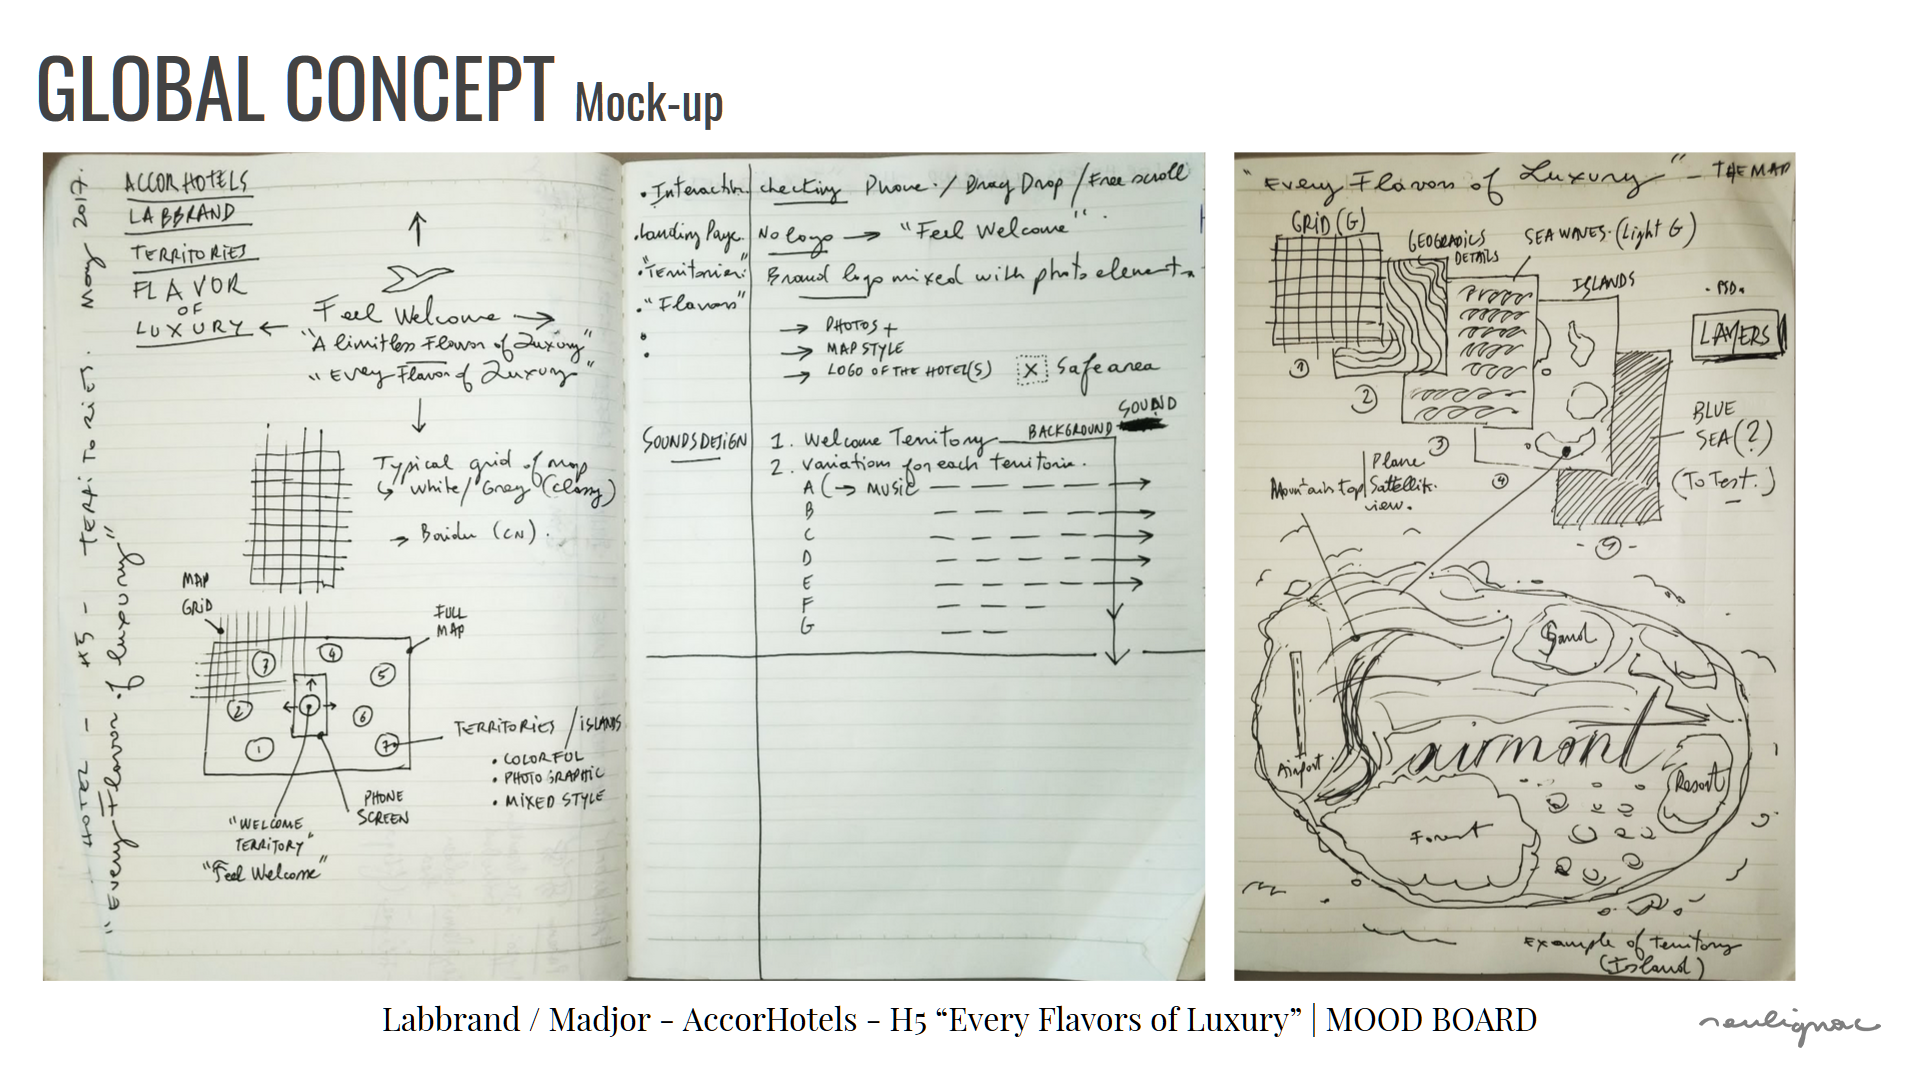 GLOBAL CONCEPT Mock-up
May 2017.
HOTEL - H5 - TERRITORIES.
"Every Flavor of luxury"
ACCORHOTELS
LABBRAND
TERRITORIES
FLAVOR
OF
LUXURY
Feel Welcome
"A limitless Flavor of Luxury"
"Every Flavor of Luxury"
Typical grid of map
White/Grey (classy)
MAP
GRID
FULL
MAP
3
4
5
2
6
1
7
TERRITORIES / ISLANDS
• COLORFUL
• PHOTOGRAPHIC
• MIXED STYLE
PHONE
SCREEN
"WELCOME
TERRITORY"
"Feel Welcome"
checking Phone / Drag Drop / Free scroll
• Landing Page. No logo → "Feel Welcome".
• "Territories" Brand logo mixed with photo elements
• "Flavors"
→ PHOTOS +
→ MAP STYLE
→ LOGO OF THE HOTEL(S) X Safe area
SOUND
SOUNDSDESIGN
1. Welcome Territory BACKGROUND
2. Variations for each
A (→ MUSIC
B
C
D
E
F
G
"Every Flavors of Luxury" - THE MAP
GRID (G)
DETAILS
SEA WAVES. (Light G)
ISLANDS
• PSD.
LAYERS
1
2
3
4
BLUE
SEA (?)
(To Test.)
Mountain top
Plane
view.
Sand
Airport
Fairmont
Resort
Forest
Example of Territory
(Island)
Labbrand / Madjor - AccorHotels - H5 “Every Flavors of Luxury” | MOOD BOARD